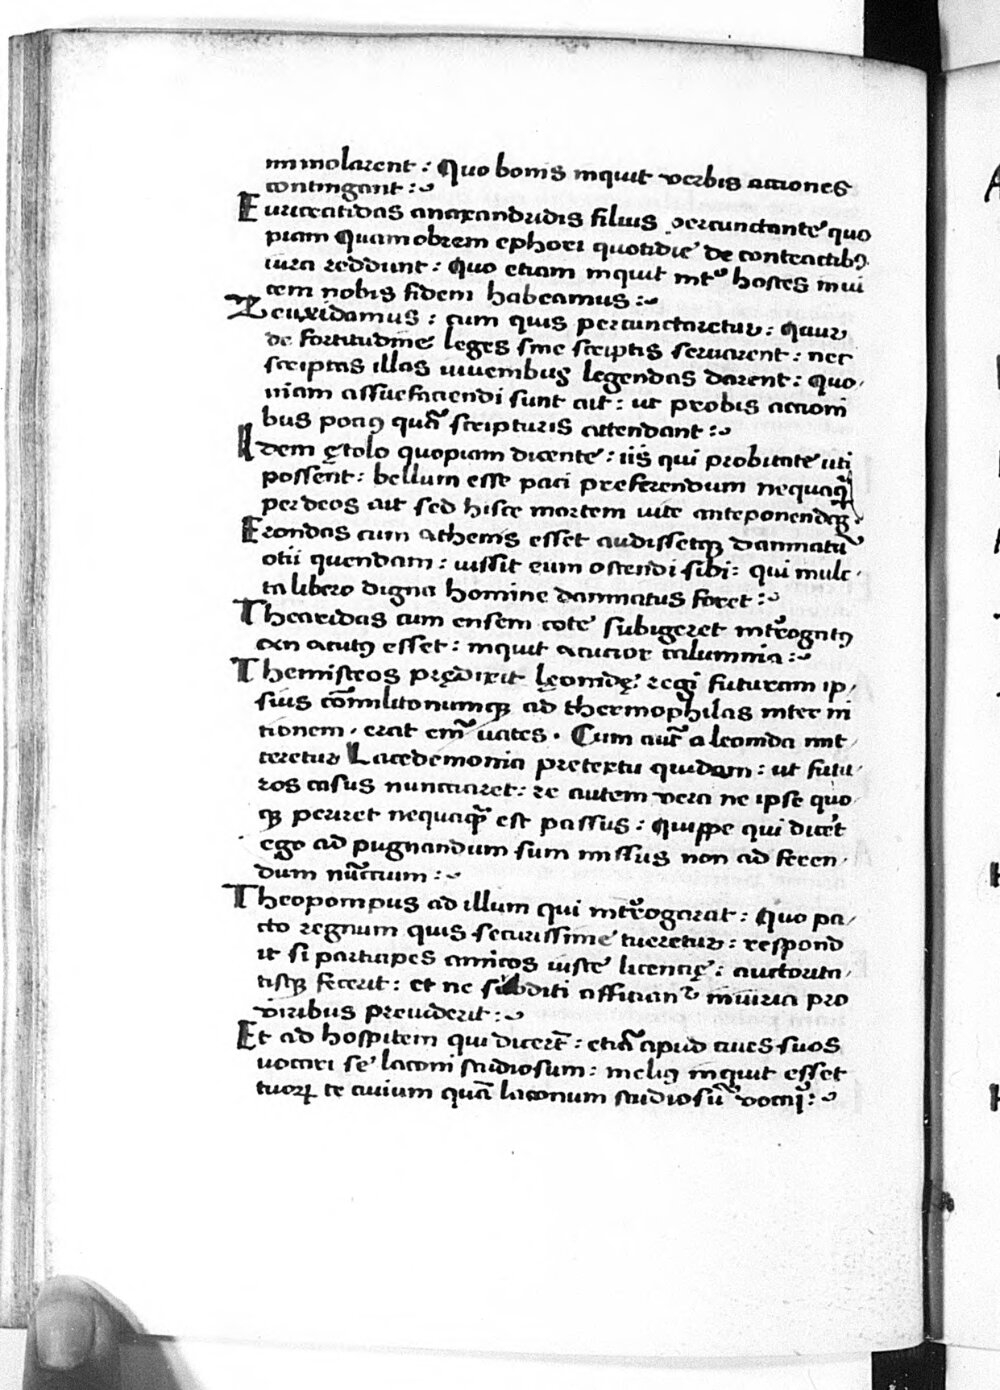 immolarent : Quo bonis inquit verbis acciones
contingant :~
Euricratidas anaxandridis filius percunctante quo
piam Quamobrem ephori quotidie de contractibꝰ
iura reddunt : Quo etiam inquit int' hostes inui
cem nobis fidem habeamus :~
Zeuxidamus : cum quis percunctaretur : Quur
de fortitudine leges sine scriptis seruarent : nec
scriptas illas iuuenibus legendas darent : quo
niam assuefaciendi sunt ait : ut probis accioni
bus pociꝰ quā scripturis attendant :~
Idem ętolo quopiam dicente : iis qui probitate uti
possent : bellum esse paci preferendum nequaq̄
per deos ait sed hisce mortem uite anteponendā
Erondas cum athenis esset audissetqꝫ danmatū
otii quendam : iussit eum ostendi sibi : qui mulc
ta libero digna homine danmatus foret :~
Thearidas cum ensem cote subigeret int'rogatꝰ
an acutꝰ esset : inquit acucior calumnia :~
Themisteos prędixit lęonidę regi futuram ip
sius cōmilitonumqꝫ ad thermophilas inter ni
tionem . erat eni' uates . Cum aut' a leonida mit
teretur Lacedemonia pretextu quidam : ut futu
ros casus nunciaret : re autem vera ne ipse quo
qꝫ periret nequaq̄ est passus : Quippe qui dicēt
ego ad pugnandum sum missus non ad feren
dum nūcium :~
Theopompus ad illum qui int'rogarat : Quo pa
cto regnum quis securissime tueretur : respond
it si participes amicos iuste licencię : auctorita
tisqꝫ fecerit : et ne subditi afficiant' iniuria pro
viribus preuiderit :~
Et ad hospitem qui dicerēt : etiā apud ciues suos
uocari se laconi studiosum : meliꝰ inquit esset
tuoꝝ te ciuium quā laconum studiosū vocari :~